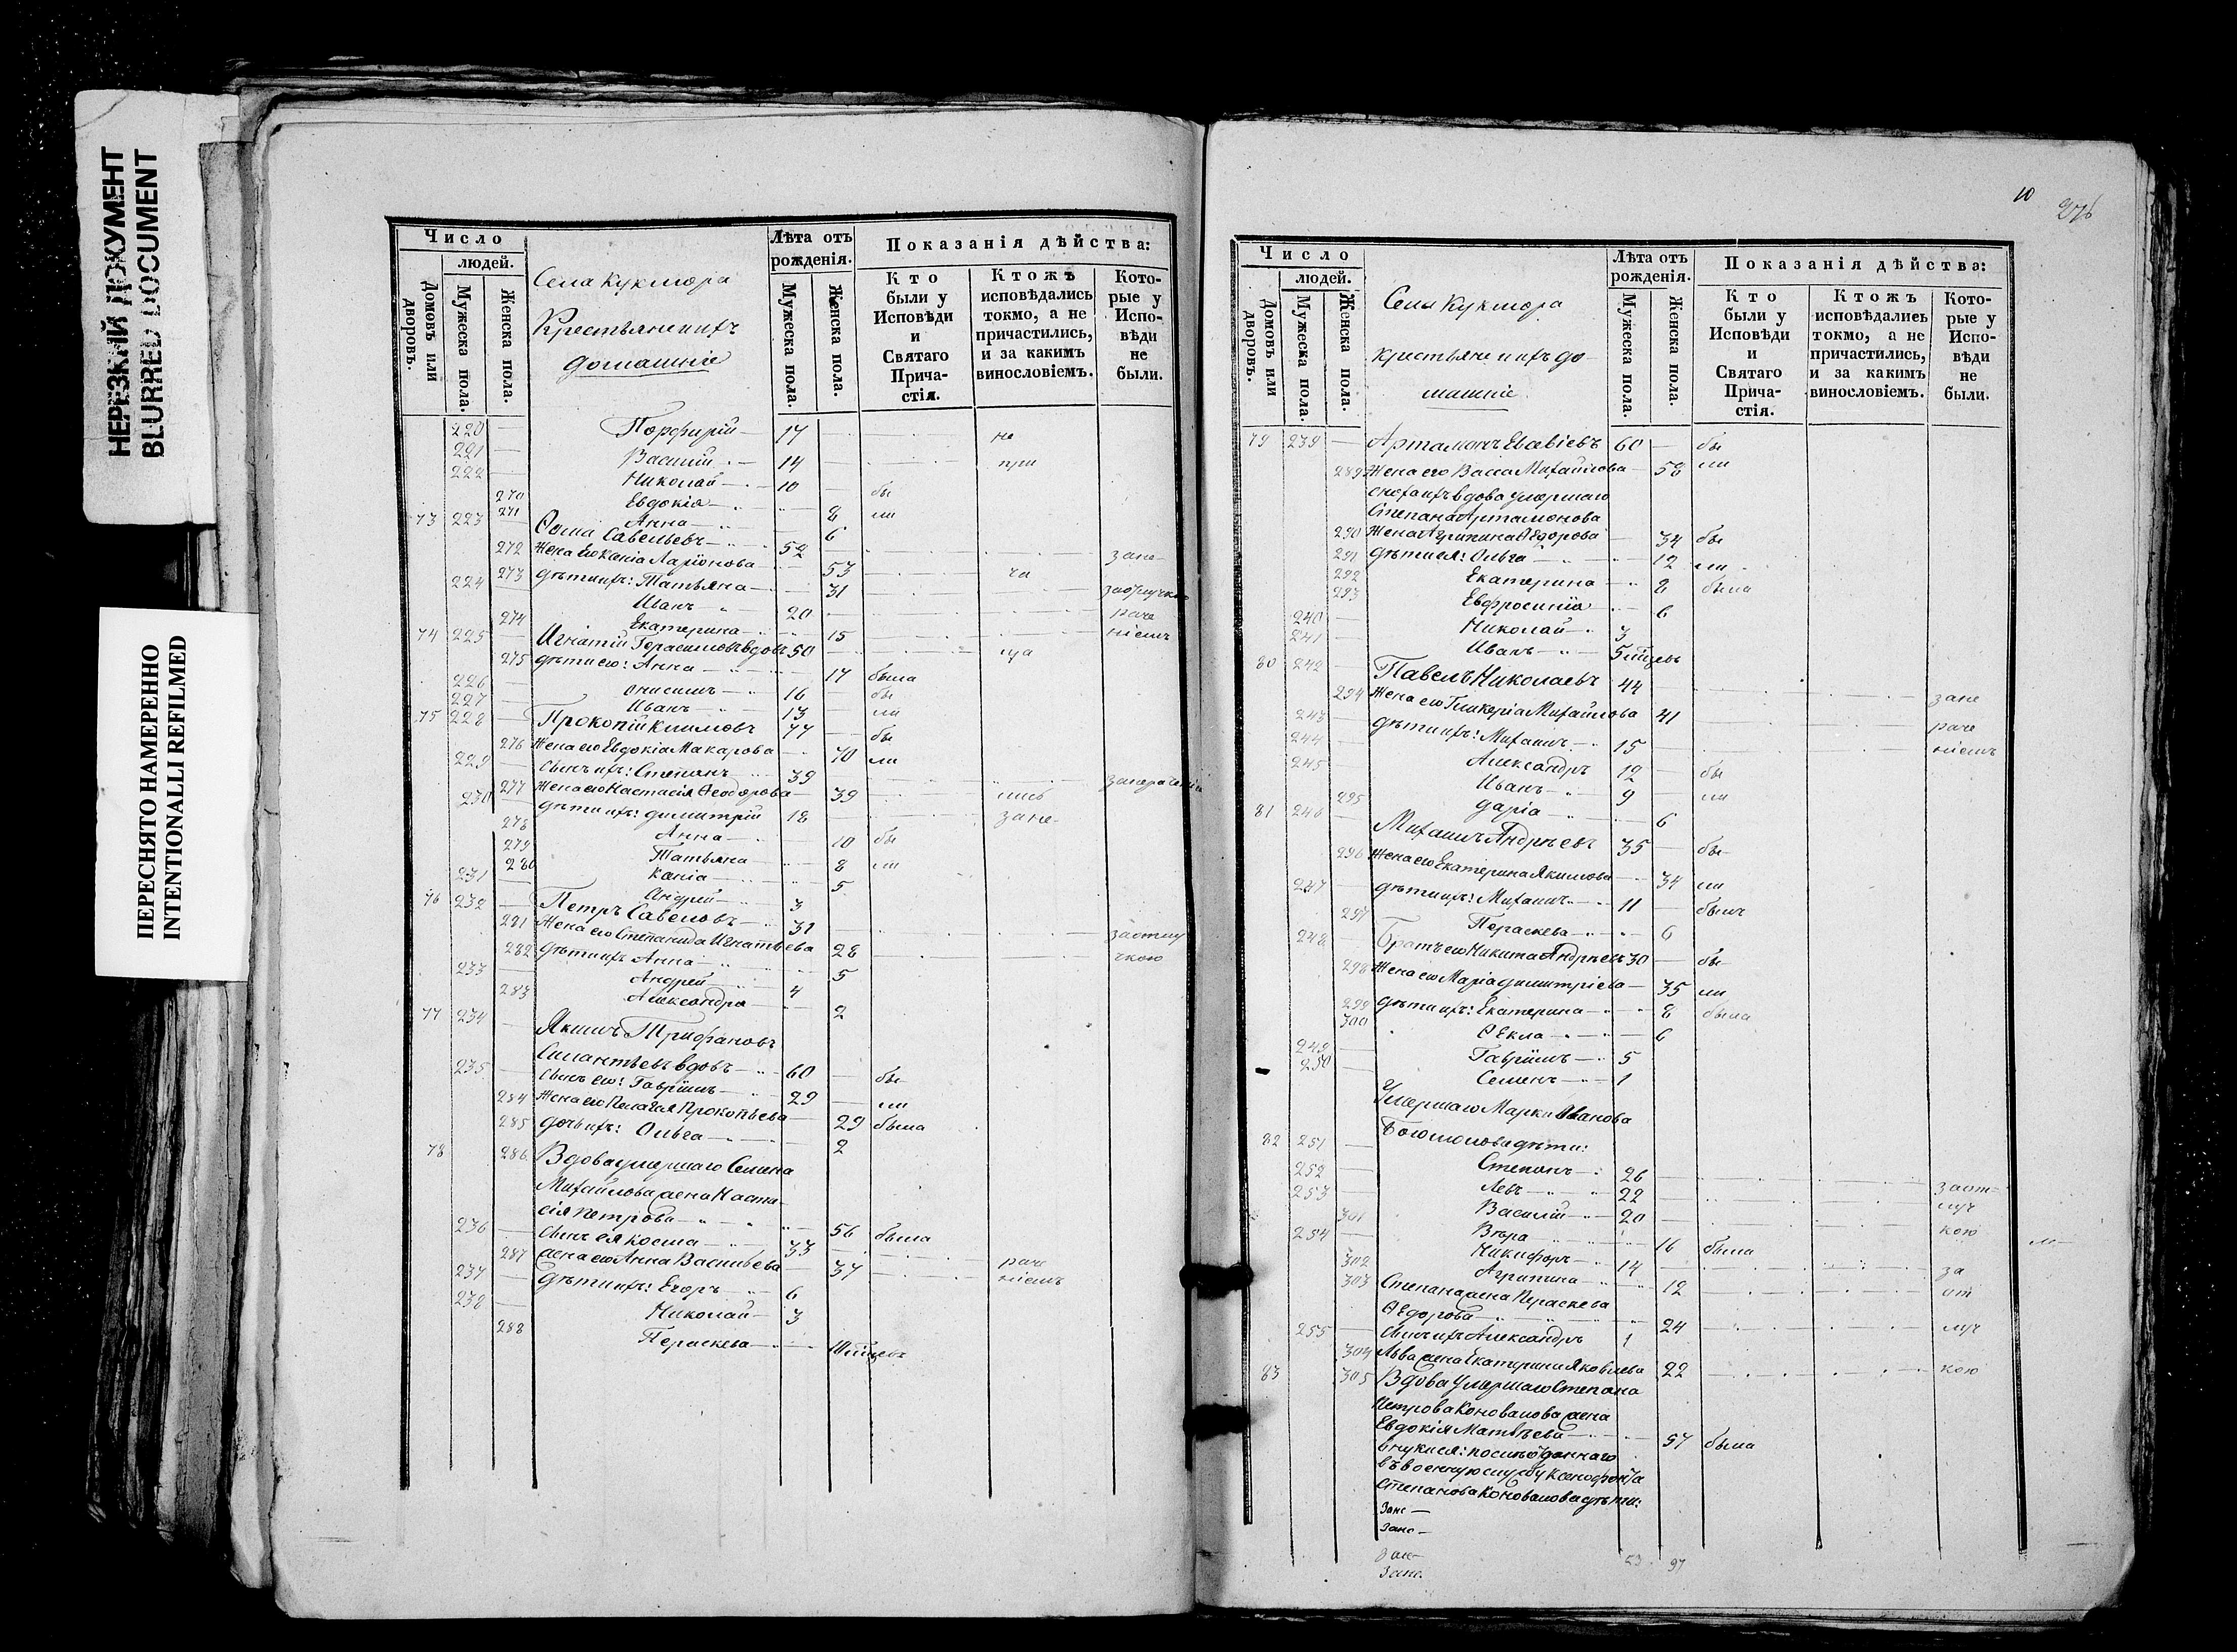 НЕРЕЗКІЙ ДОКУМЕНТ
BLURRED DOCUMENT
ПЕРЕСНЯТО НАМЕРЕННО
INTENTIONALLI REFILMED
Число
людей.
Домовъ или дворовъ.
Мужеска пола.
Женска пола.
Села Кукмора
Крестьяне ихъ
домашніе
Лѣта отъ рожденія.
Мужеска пола.
Женска пола.
Показанія дѣйства:
Кто были у Исповѣди и Святаго Прича-стія.
Ктожъ исповѣдались токмо, а не причастились, и за какимъ винословіемъ.
Кото-рые у Испо-вѣди не были.
220 — Порфирій — 17 не
221 — Василій — 14 при
222 — Николай — 10 бы
270 Евдокія — 8 ли
271 Анна — 6
73 223 Савельевъ — 52
272 Жена его Ксенія Ларіонова — 53 зане-
273 Дѣти ихъ: Татьяна — 31 ча
224 Иванъ 20
274 Екатерина — 15 раче
74 225 — Игнатій Герасимовъ вдовъ 50 ніемъ
275 Дѣти его: Анна — 17 была
226 — Онисимъ — 16 бы
227 — Иванъ 13 ли
75 228 — Прокопій Климовъ 77 бы
276 Жена его Евдокія Макарова — 70 ли
229 — Сынъ ихъ: Степанъ 39
277 Жена его Настасія Феодорова — 39
230 — Дѣти ихъ: Димитрій 12 зане-
278 Анна — 10 бы
279 Татьяна — 8 ли
280 Ксенія — 5
231 — Андрей — 3
76 232 — Петръ Савеловъ — 31
281 Жена его Степанида Игнатьева 28
282 Дѣти ихъ Анна — 5 чкою
233 Андрей 4
283 Александра — 2
77 234 — Якимъ Трифановъ
Силантьевъ вдовъ — 60 бы
235 — Сынъ его: Гавріилъ — 29 ли
284 Жена его Пелагея Прокопьева — 29 была
285 Дочь ихъ: Ольга — 2
78 286 Вдова умершаго Семена
Михайлова жена Наста-
сія Петрова — 56 была
236 — Сынъ ея Косма — 33
287 жена его Анна Васильева — 37 раче
237 — Дѣти ихъ: Егоръ — 6 ніемъ
238 — Николай — 3
288 Параскева —
10
276
Число
людей.
Домовъ или дворовъ.
Мужеска пола.
Женска пола.
Села Кукмора
крестьяне ихъ до-
машніе
Лѣта отъ рожденія.
Мужеска пола.
Женска пола.
Показанія дѣйства:
Кто были у Исповѣди и Святаго Прича-стія.
Ктожъ исповѣдались токмо, а не причастились, и за какимъ винословіемъ.
Кото-рые у Испо-вѣди не были.
79 239 — Артамонъ Евсевіевъ 60 — бы
289 Жена его Васса Михайлова — 58 ли
сноха ихъ вдова умершаго
Степана Артамонова
290 Жена Агрипина Федорова — 34 бы
291 Дѣти ея: Ольга 12 ли
292 Екатерина — 8 была
293 Евфросинія — 6
240 — Николай — 3
241 — Иванъ — 5
80 242 — Павелъ Николаевъ 44
294 Жена его Гликерія Михайлова 41 зане
243 Дѣти ихъ: Михаилъ — 15 раче
244 — Александръ 12 бы ніемъ
245 Иванъ — 9 ли
295 Дарія — 6
81 246 — Михаилъ Андреевъ 35 — бы
296 Жена его Екатерина Якимова — 34 ли
247 — Дѣти ихъ: Михаилъ — 11 — былъ
297 Параскева — 6
248 — Братъ его Никита Андреевъ 30 — бы
298 Жена его Марія Димитріева — 35 ли
299 Дѣти ихъ: Екатерина — 8 была
300 Фекла — 6
249 — Гавріилъ — 5
250 — Семенъ — 1
Умершаго Марка Иванова
82 251 — Богомолова дѣти:
252 — Степанъ — 26
253 — Левъ — 22 заот-
Василій — 20 луч
301 Вѣра 16 была кою
254 — Никифоръ — 14
302 Агрипина — 12 за
303 Степана жена Параскева от
Федорова 24 луч
255 — Сынъ ихъ Александръ 1
304 Льва жена Екатерина Яковлева 22 кою
83 305 Вдова умершаго Степана
Петрова Коновалова жена
Евдокія Матвѣева — 57 была
внуки ея: послѣ отданнаго
въ военную службу Ксенофонта
Степанова Коновалова дѣти:
Зане —
Зане —
53 97